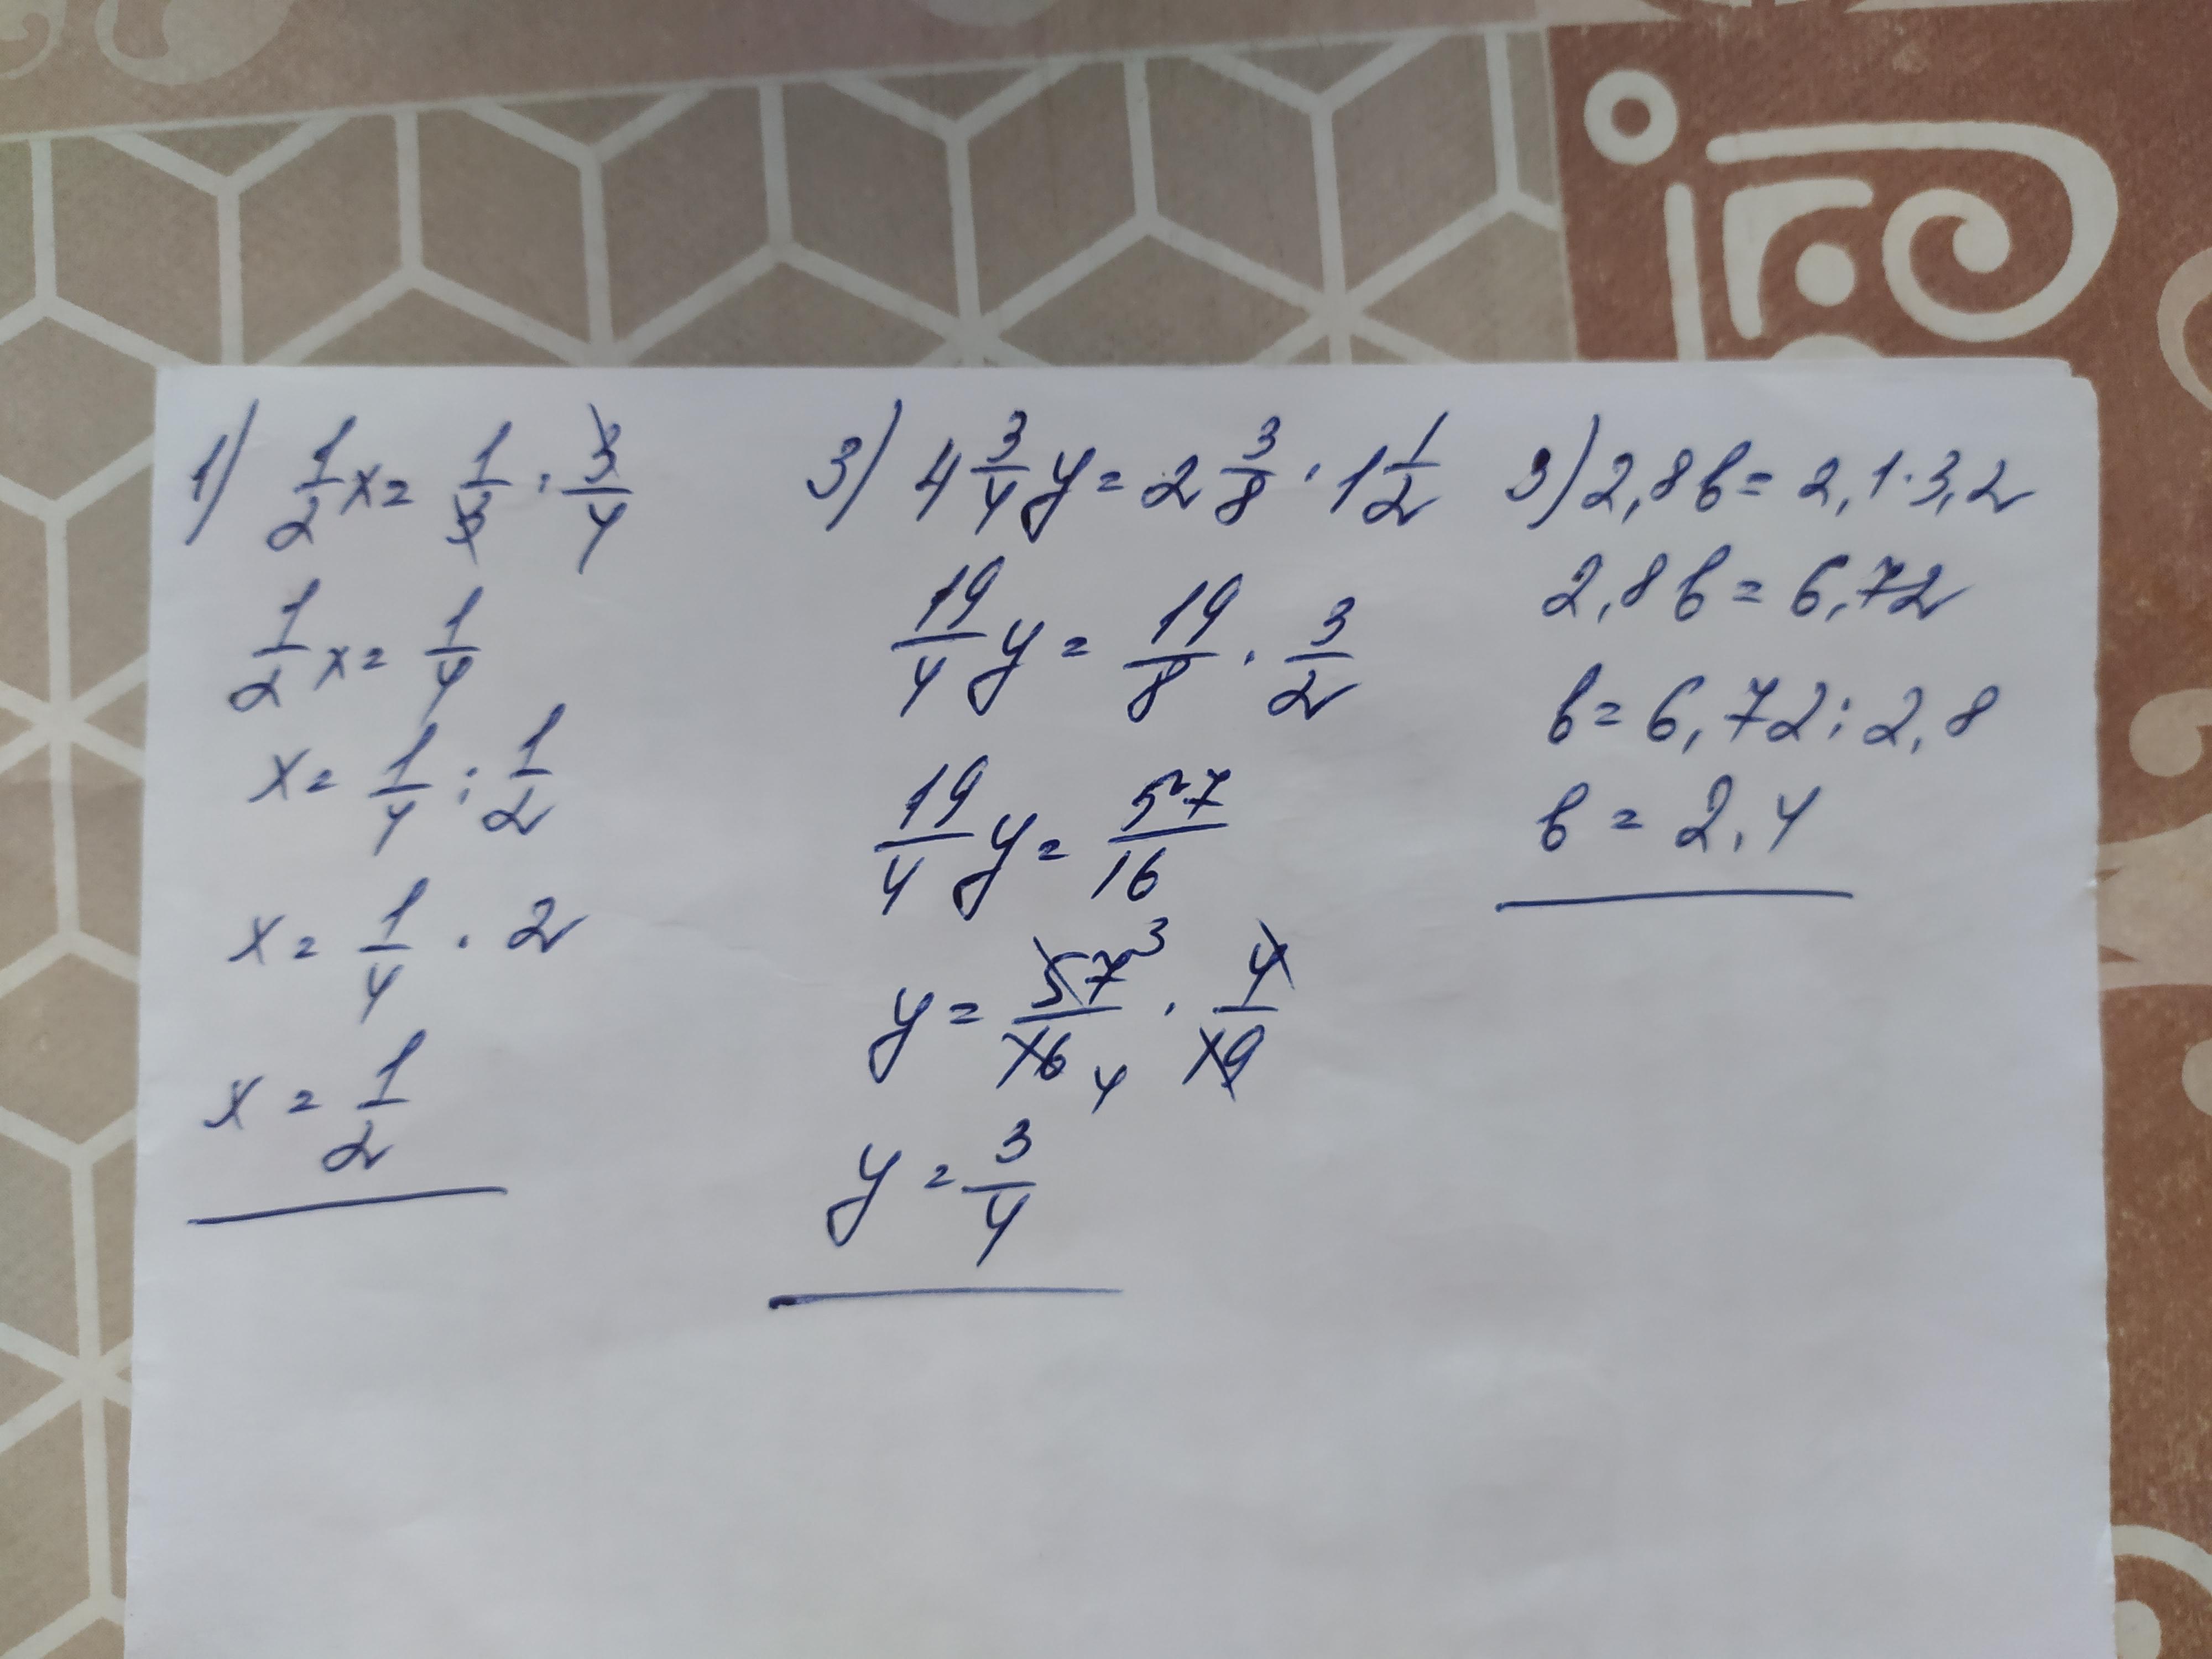 1) 1/2 x = 1/3 · 3/4
1/2 x = 1/4
x = 1/4 : 1/2
x = 1/4 · 2
x = 1/2
3) 4 3/4 y = 2 3/8 · 1 1/2
19/4 y = 19/8 · 3/2
19/4 y = 57/16
y = 57 3/16 4 · 4/19
y = 3/4
3) 2,8 b = 2,1 · 3,2
2,8 b = 6,72
b = 6,72 : 2,8
b = 2,4